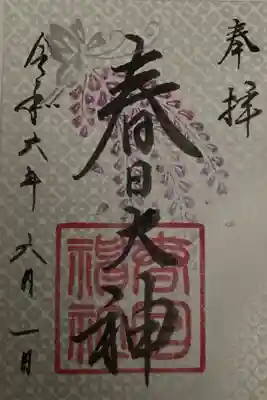 奉拝
春日大神
春日神社
令和六年六月一日